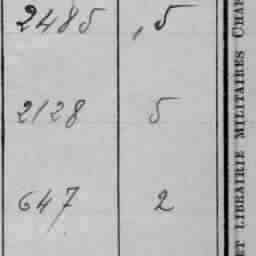 2485 , 5
2128 5
647 2
ET LIBRAIRIE MILITAIRES CHAR